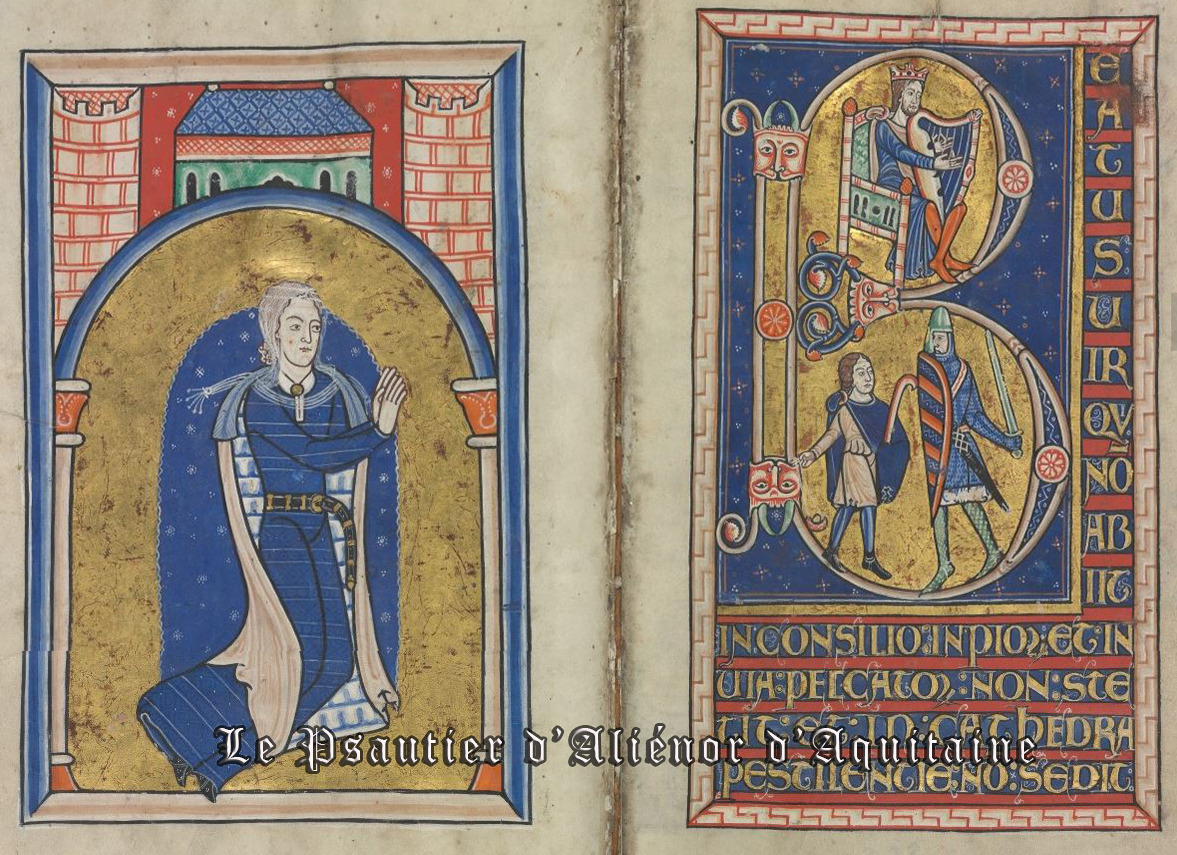 B
E
A
T
U
S:
U
IR
QVI
NO
AB
IIT
IN·CONSILIO·INPIOꝜ:ET·IN
UIA·PECCATOꝜ:NON·STE
TIT:ET·IN·CATHEDRA
PESTILENTIE·NO·SEDIT:
Le Psautier d'Aliénor d'Aquitaine